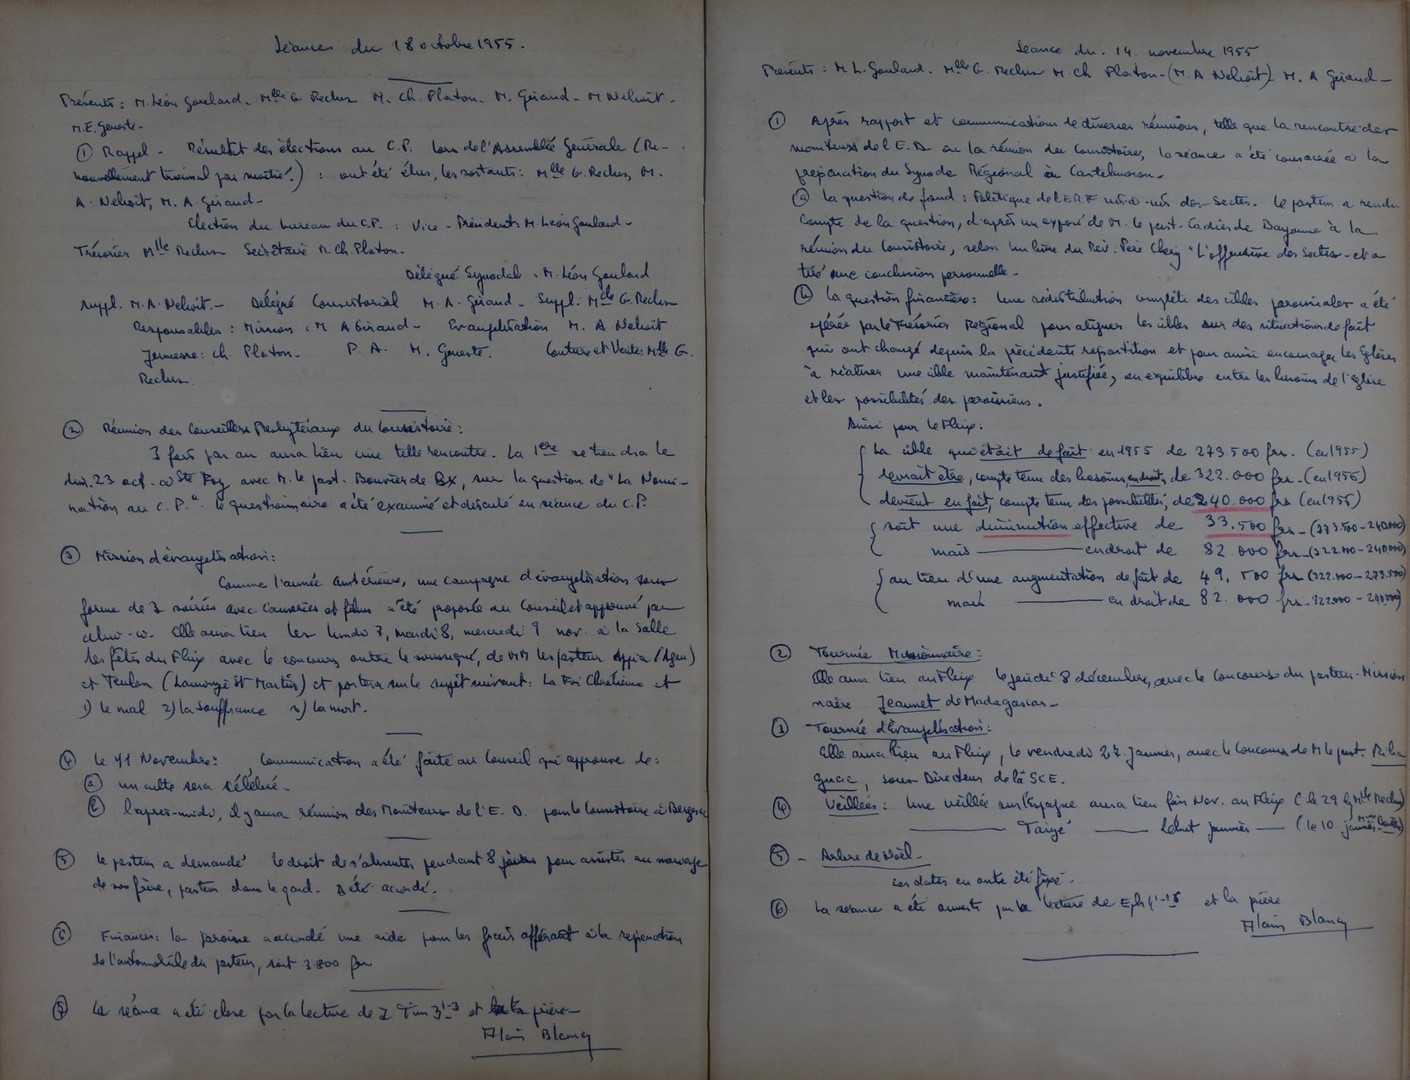 Séances du 18 octobre 1955.
Présents : M. Léon Goulard. Mlle G. Reclus M. Ch. Platon. M. Giraud - M Nehoit -
M. E. Geneste.
① Rappel - Résultat des élections au C.P. lors de l'Assemblée Générale (Re-
nouvellement triennal par moitié.) : ont été élus, les sortants : Mlle G. Reclus, M.
A. Nehoit, M. A. Giraud -
Election du bureau du C.P. : Vice - Président M. Léon Goulard -
Trésorier Mlle Reclus Secrétaire M. Ch. Platon.
Délégué Synodal . M. Léon Goulard
suppl. M. A. Nehoit. - Délégué Consistorial M. A. Giraud - Suppl. Mlle G. Reclus
Responsables : Mission : M A Giraud - Evangélisation M. A. Nehoit
Jeunesse : Ch. Platon. P. A. M. Geneste. Couture et Vente : Mlle G.
Reclus.
② Réunion des Conseillers Presbytéraux du Consistoire :
3 fois par an aura lieu une telle rencontre. La 1ère se tiendra le
dim. 23 oct. à Ste Foy avec M. le past. Bouvier de Bx, sur la question de "La Nomi-
nation au C.P." le questionnaire a été examiné et discuté en séance du C.P.
③ Mission d'évangélisation :
Comme l'année antérieure, une campagne d'évangélisation sous
forme de 3 soirées avec causeries et films a été proposée au Conseil et approuvé par
celui-ci. Elle aura lieu les lundi 7, mardi 8, mercredi 9 nov. à la Salle
des fêtes du Fleix avec le concours outre le soussigné, de MM les pasteurs Appia (Agen)
et Teulon (Lamonzie St Martin) et portera sur le sujet suivant : La Foi Chrétienne et
1) le mal 2) la souffrance 3) la mort.
④ Le 11 Novembre : Communication a été faite au Conseil qui approuve de :
ⓐ un culte sera célébré.
ⓑ l'après-midi, il y aura réunion des Moniteurs de l'E. D. pour le Consistoire à Bergerac
⑤ Le pasteur a demandé le droit de s'absenter pendant 8 jours pour assister au mariage
de son frère, pasteur dans le Gard. a été accordé.
⑥ Finances : la paroisse a accordé une aide pour les frais afférant à la réparation
de l'automobile du pasteur, soit 3 800 frs
⑦ La séance a été close par la lecture de 2 Tim 3 1-3 et la prière -
Alain Blancy
Séance du . 14. novembre 1955
Présents : M L. Goulard. Mlle G. Reclus M. Ch Platon - (M. A Nehoit) M. A Giraud -
① Après rapport et communications de diverses réunions, telle que la rencontre des
moniteurs de l'E.D ou la réunion du Consistoire, la séance a été consacrée à la
préparation du Synode Régional à Castelmoron -
ⓐ la question de fond : Politique de l'E.R.F vis-à-vis des Sectes. le pasteur a rendu
compte de la question, d'après un exposé de M. le past. Cadier de Bayonne à la
réunion du Consistoire, selon un livre du Rév. Père Chery "L'offensive des Sectes - et a
tiré une conclusion personnelle -
ⓑ La question financière : Une redistribution complète des cibles paroissiales a été
opérée par le Trésorier Régional pour aligner les cibles sur des situations de fait
qui ont changé depuis la précédente répartition et pour ainsi encourager les Eglises
à réaliser une cible maintenant justifiée, en équilibre entre les besoins de l'Eglise
et les possibilités des paroissiens.
Ainsi pour le Fleix :
La cible qui était de fait en 1955 de 273.500 frs. (en 1955)
devrait être, compte tenu des besoins, en droit, de 322.000 frs. (en 1956)
devient en fait, compte tenu des possibilités, de 240.000 frs (en 1956)
soit une diminution effective de 33.500 frs - (273.500 - 240.000)
mais ——— en droit de 82 000 frs - (322.000 - 240.000)
au lieu d'une augmentation de fait de 49, 500 frs (322.000 - 273.500)
mais ——— en droit de 82. 000 frs - 322000 - 240000)
② Tournée Missionnaire :
Elle aura lieu au Fleix le jeudi 8 décembre, avec le concours du pasteur - Mission
naire Jeannet de Madagascar -
③ Tournée d'Evangélisation :
Elle aura lieu au Fleix, le vendredi 27. Janvier, avec le concours de M le past.
sous Directeur de la SCE.
④ Veillées : Une veillée sur l'Espagne aura lieu fin Nov. au Fleix ( le 29 Mlle Reclus)
——— Taizé ——— début janvier — (le 10. janvier
⑤ - Arbre de Noël -
Les dates en ont été fixé.
⑥ La séance a été ouverte par la lecture de Eph 4 1-15 et la prière
Alain Blancy